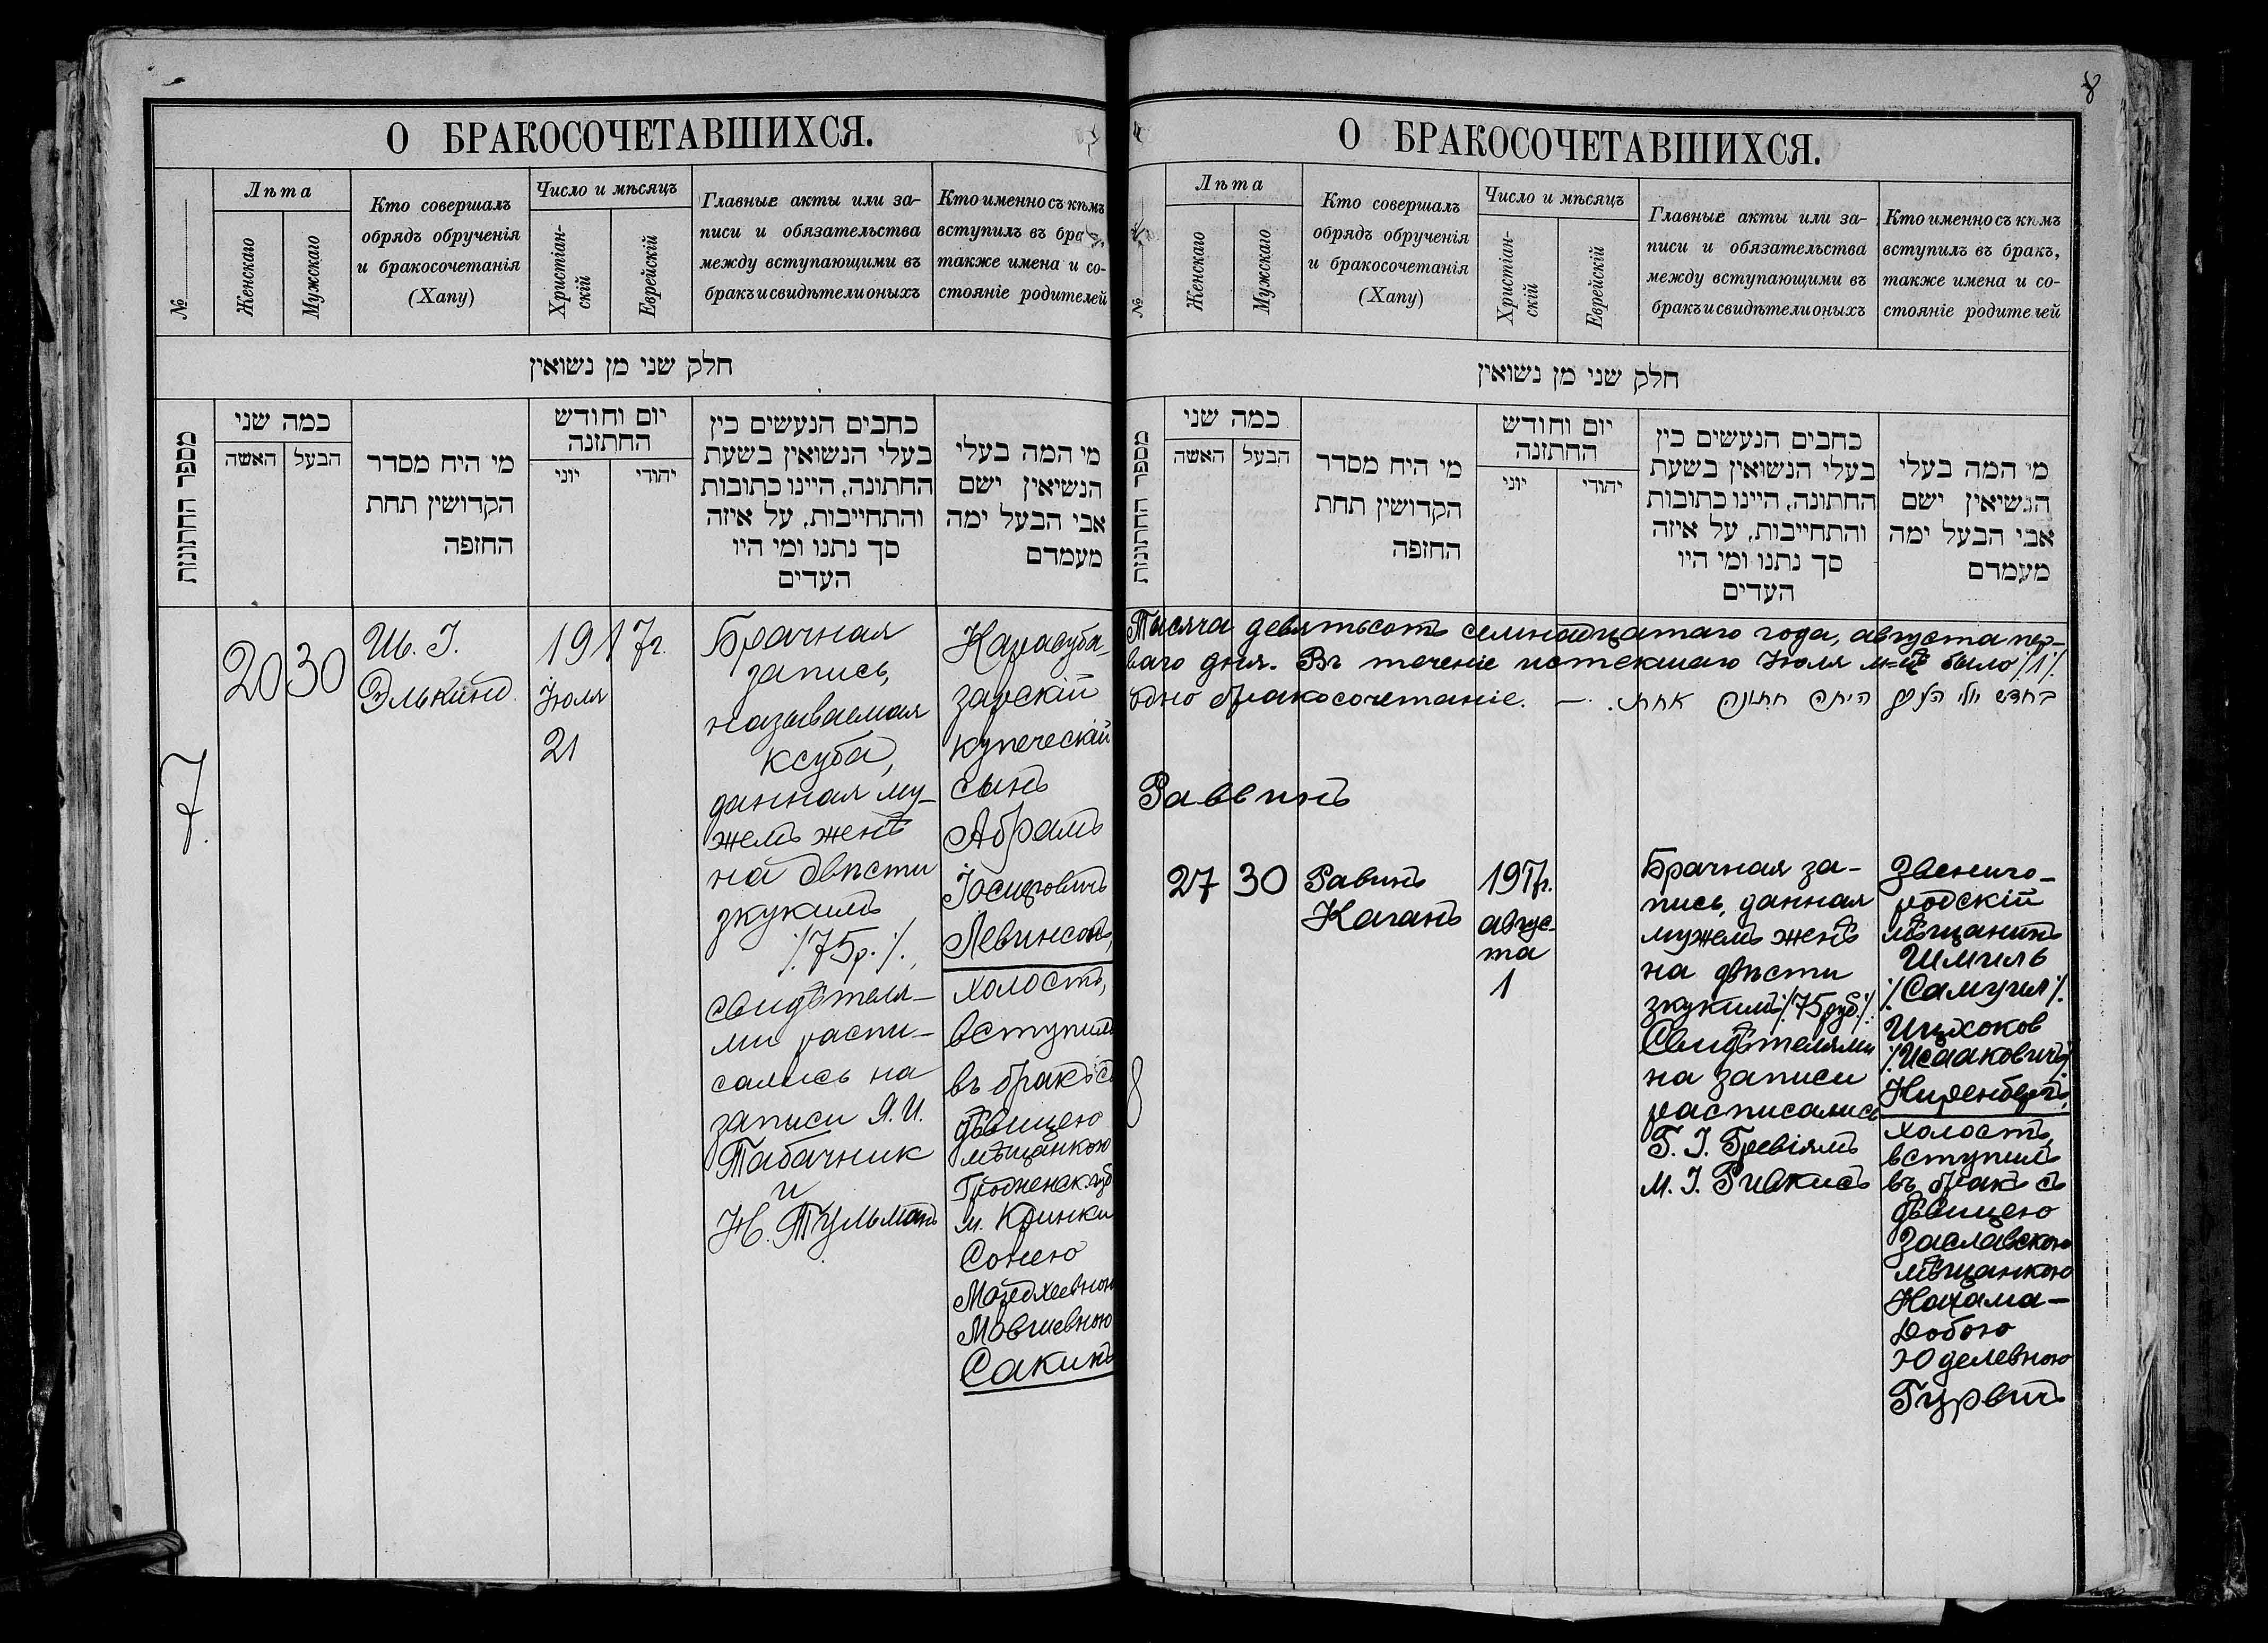 8
О БРАКОСОЧЕТАВШИХСЯ.
№
Лѣта
Женскаго
Мужскаго
Кто совершалъ
обрядъ обрученія
и бракосочетанія
(Хапу)
Число и мѣсяцъ
Христіан-
скій
Еврейскій
Главные акты или за-
писи и обязательства
между вступающими въ
бракъ и свидѣтели оныхъ
Кто именно съ кѣмъ
вступилъ въ бра
также имена и со-
стояніе родителей
חלק שני מן נשואין
מספר החתונות
כמה שני
האשה
הבעל
מי היח מסדר
הקדושין תחת
החופה
יום וחודש
החתונה
יוני
יהודי
כתבים הנעשים בין
בעלי הנשואין בשעת
החתונה, היינו כתובות
והתחייבות, על איזה
סך נתנו ומי היו
העדים
מי המה בעלי
הנשיאין ישם
אבי הבעל ימה
מעמדם
7.
20
30
Ш. I.
Элькинд.
1917г.
Июля
21
Брачная
запись,
называемая
ксуба,
данная му-
жемъ женѣ
на двѣсти
зкукимъ
/75р./.,
свидѣтеля-
ми распи-
сались на
записи Я.И.
Табачник
и
Н. Тульманъ
Карасуба-
зарскій
купеческій
сынъ
Абрамъ
Іосифовичъ
Левинсонъ,
холостъ,
вступилъ
въ бракъ съ
дѣвицею
мѣщанкою
Гродненск. губ
м. Кринки
Сонею
Мордхеевною
Мовшевною
Сакинъ
О БРАКОСОЧЕТАВШИХСЯ.
№
Лѣта
Женскаго
Мужскаго
Кто совершалъ
обрядъ обрученія
и бракосочетанія
(Хапу)
Число и мѣсяцъ
Христіан-
скій
Еврейскій
Главные акты или за-
писи и обязательства
между вступающими въ
бракъ и свидѣтели оныхъ
Кто именно съ кѣмъ
вступилъ въ бракъ,
также имена и со-
стояніе родителей
חלק שני מן נשואין
מספר החתונות
כמה שני
האשה
הבעל
מי היח מסדר
הקדושין תחת
החופה
יום וחודש
החתונה
יוני
יהודי
כתבים הנעשים בין
בעלי הנשואין בשעת
החתונה, היינו כתובות
והתחייבות, על איזה
סך נתנו ומי היו
העדים
מי המה בעלי
הנשיאין ישם
אבי הבעל ימה
מעמדם
Тысяча девятьсотъ семнадцатаго года, августа пер-
ваго дня. Въ теченіе истекшаго Июля м-цѣ было /1/.
одно бракосочетаніе. — בחדש יולי היתה חתונה אחת.
Раввинъ
8
27
30
Равинъ
Каганъ
1917г.
авгус-
та
1
Брачная за-
пись, данная
мужемъ женѣ
на двѣсти
зкукимъ /75 руб./.
Свидѣтелями
на записи
расписались
Г. І. Гревіямъ
М. І. Ривкисъ
Звениго-
родскій
мѣщанинъ
Шмиль
/Самуил/.
Ицхоков
/Исааковичъ/
Ниренбергъ,
холостъ,
вступилъ
въ бракъ съ
дѣвицею
Заславскою
мѣщанкою
Нахама-
Добою
Юделевною
Гурвичъ